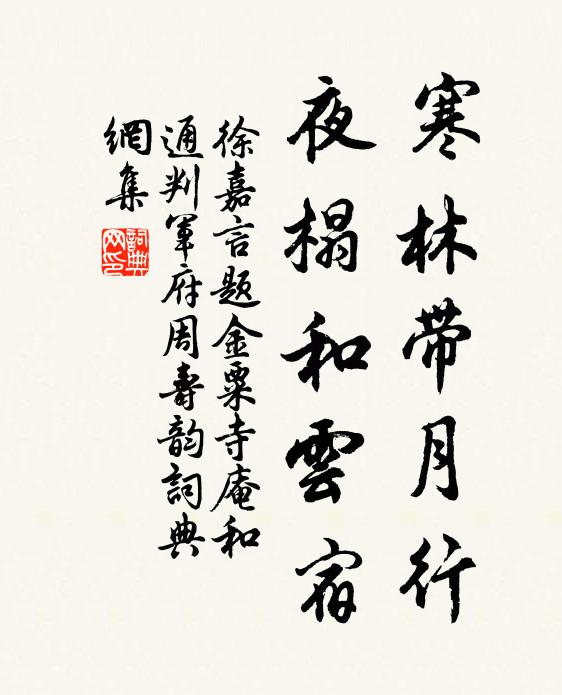 寒林带月行
夜榻和雲宿
徐嘉言题金粟寺庵和
通判军府周寿韵詞典
網集
詞典網印